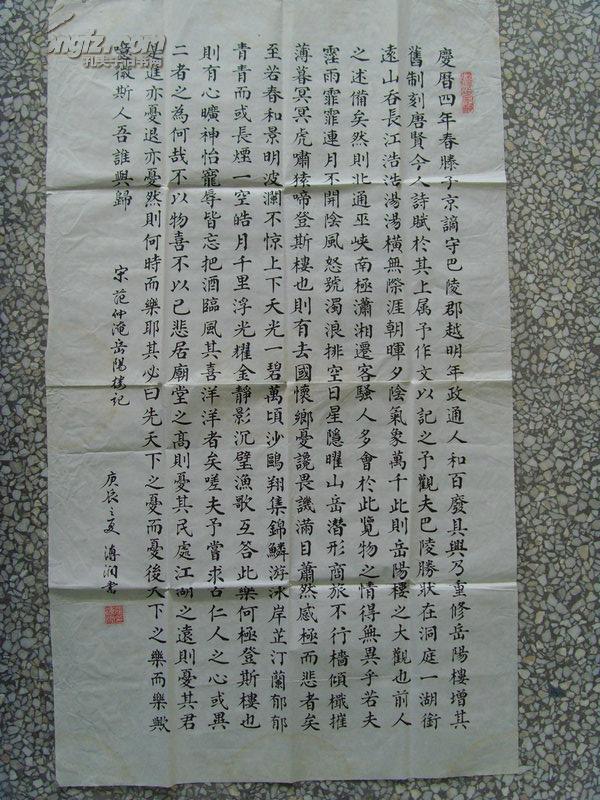 慶曆四年春滕子京謫守巴陵郡越明年政通人和百廢具興乃重修岳陽樓增其
舊制刻唐賢今人詩賦於其上属予作文以記之予觀夫巴陵勝狀在洞庭一湖銜
遠山吞長江浩浩湯湯橫無際涯朝暉夕陰氣象萬千此則岳陽樓之大觀也前人
之述備矣然則北通巫峽南極瀟湘遷客騷人多會於此覽物之情得無異乎若夫
霪雨霏霏連月不開陰風怒號濁浪排空日星隱曜山岳潛形商旅不行檣傾檝摧
薄暮冥冥虎嘯猿啼登斯樓也則有去國懷鄉憂讒畏譏滿目蕭然感極而悲者矣
至若春和景明波瀾不惊上下天光一碧萬頃沙鷗翔集錦鱗游泳岸芷汀蘭郁郁
青青而或長煙一空皓月千里浮光耀金靜影沉璧漁歌互答此樂何極登斯樓也
則有心曠神怡寵辱皆忘把酒臨風其喜洋洋者矣嗟夫予嘗求古仁人之心或異
二者之為何哉不以物喜不以己悲居廟堂之高則憂其民處江湖之遠則憂其君
是進亦憂退亦憂然則何時而樂耶其必曰先天下之憂而憂後天下之樂而樂歟
噫微斯人吾誰與歸 宋范仲淹岳陽樓記
庚辰之夏 書
kongfz.com
孔夫子旧书网